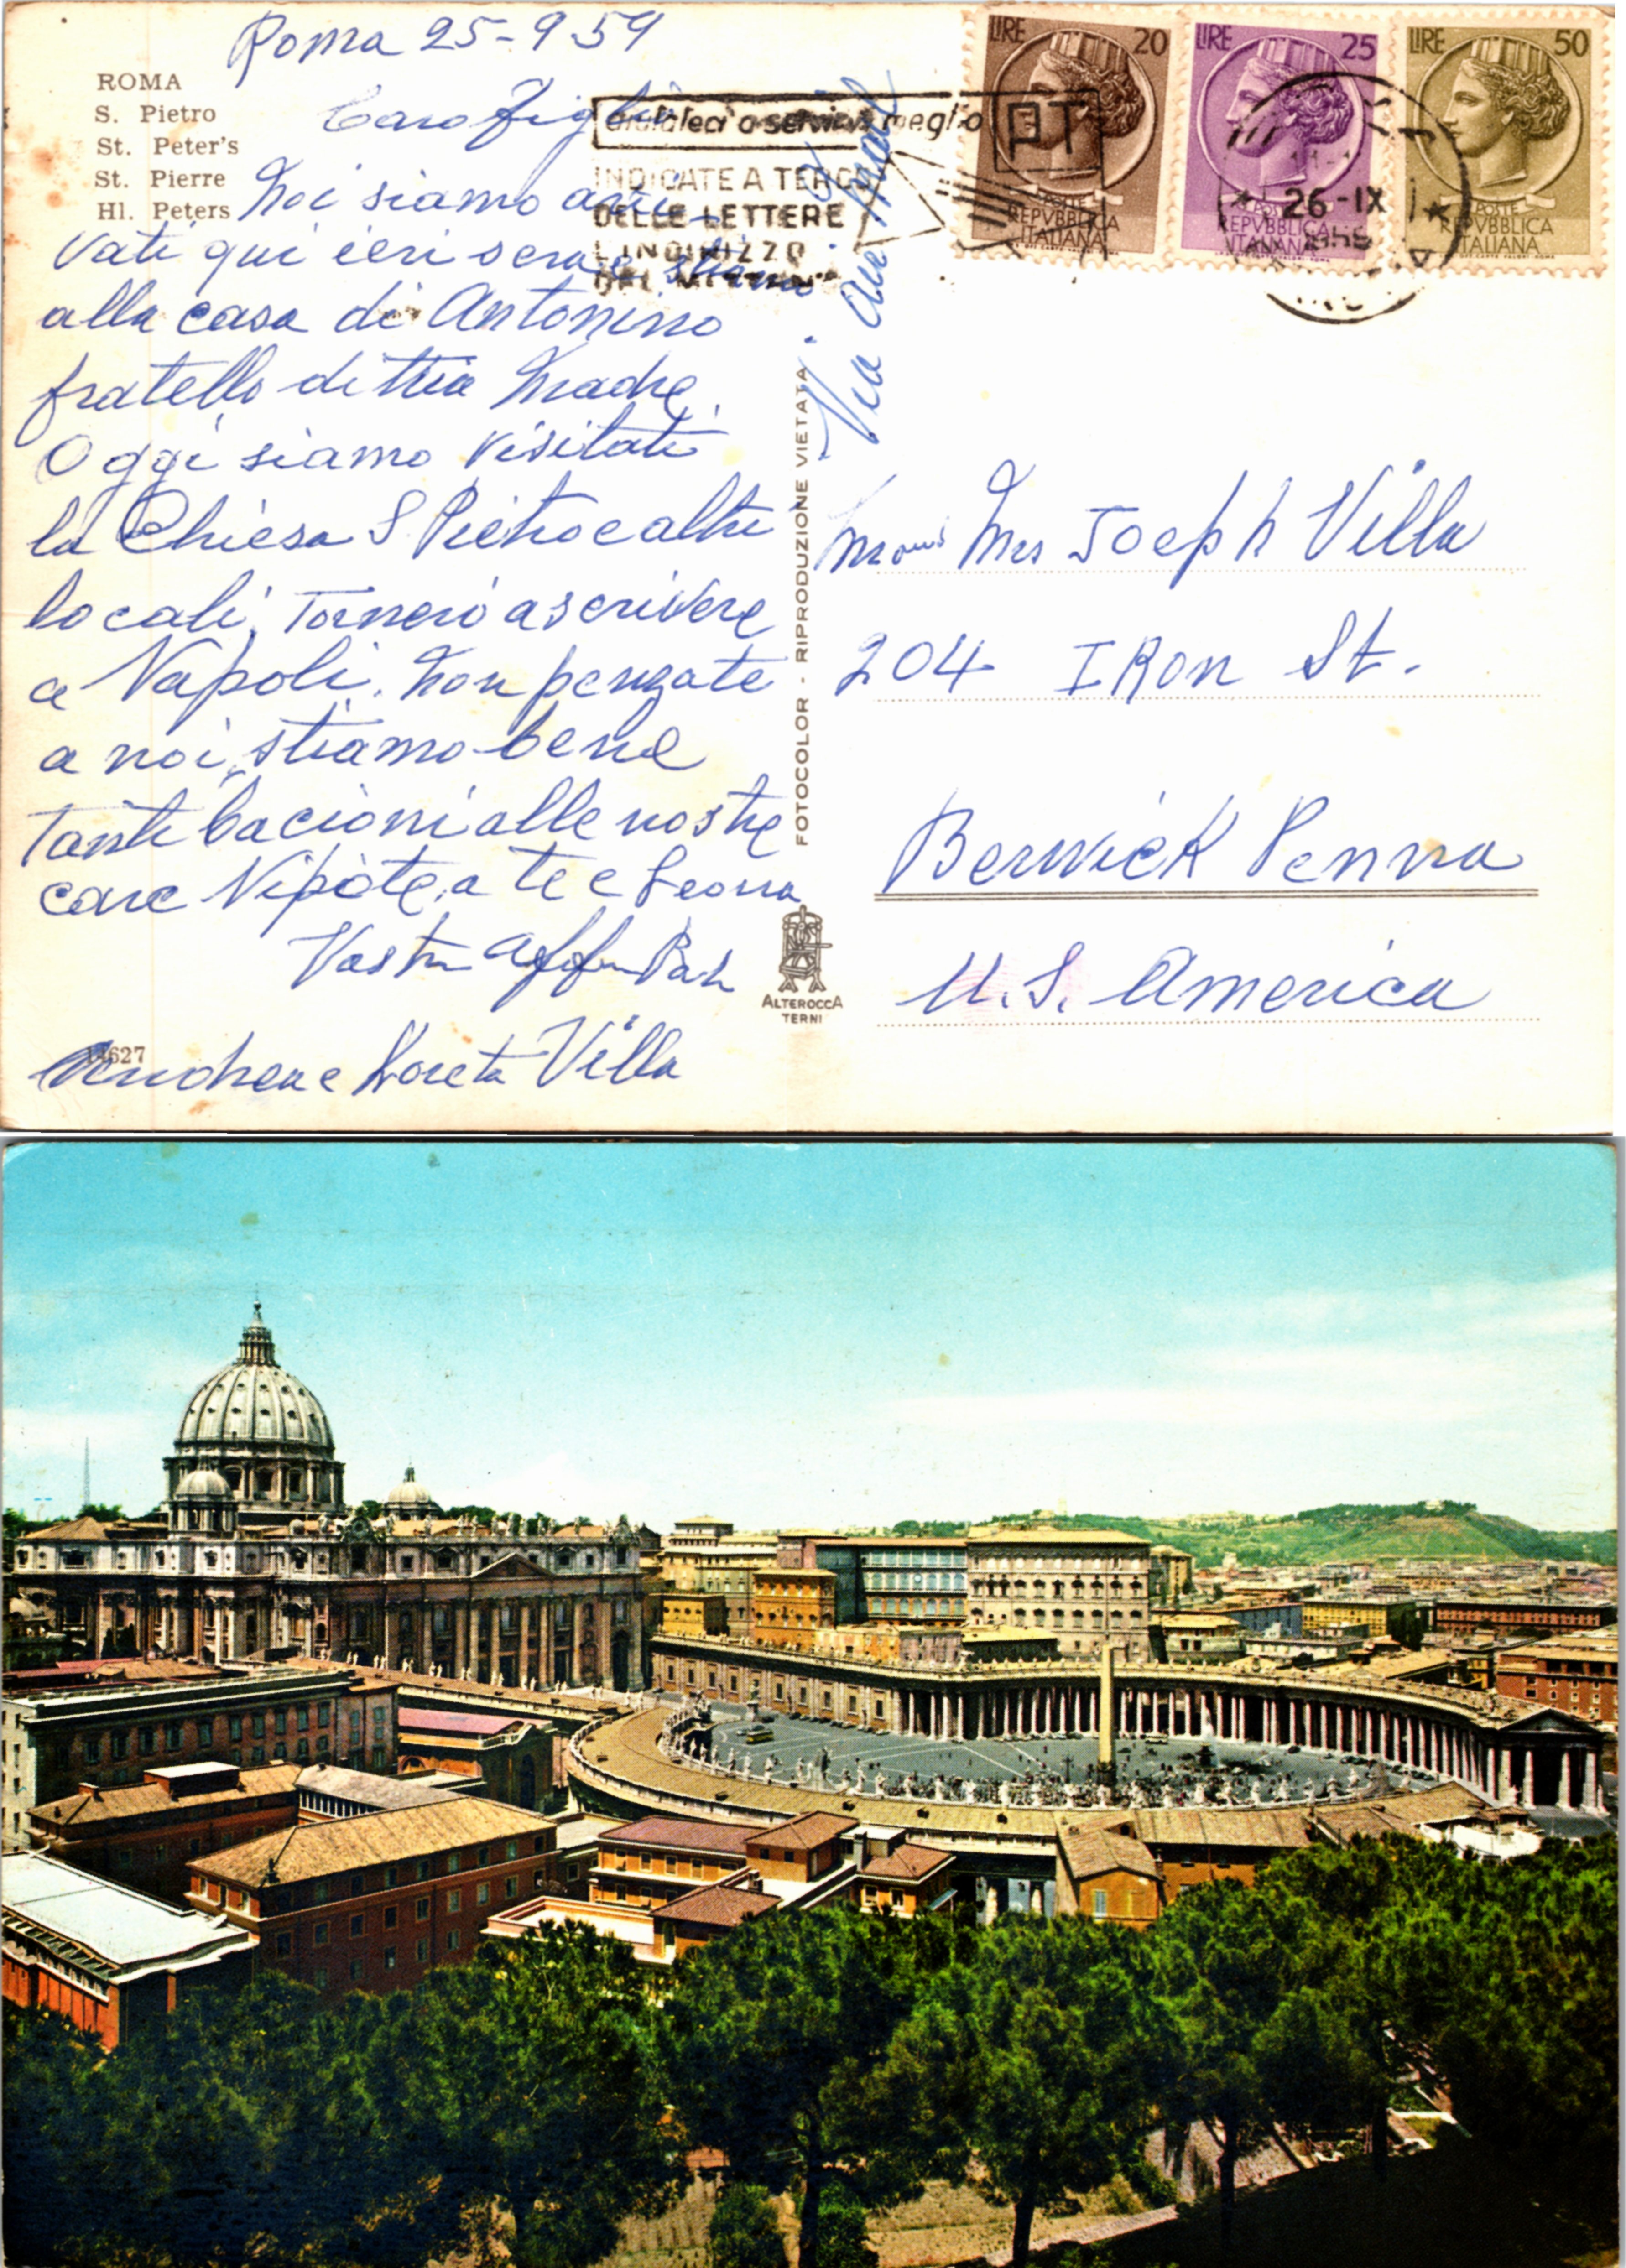 Roma 25-9-59
ROMA
S. Pietro
St. Peter's
St. Pierre
Hl. Peters
Caro Figlio
Noi siamo arri-
vati qui ieri sera e stiamo
alla casa di Antonino
fratello di Mia Madre.
Oggi siamo visitati
la Chiesa S Pietro e altri
locali, Tornerò a scrivere
a Napoli. Non penzate
a noi, stiamo bene
Tanti bacioni alle nostre
care Nipote, a te e Leona
Vostri
Andrea e Loreta Villa
14627
Via Air Mail
aiutateci a servirvi meglio
INDICATE A TERGO
DELLE LETTERE
L'INDIRIZZO
DEL MITTENTE
PT
LIRE 20
POSTE
REPVBBLICA
ITALIANA
LIRE 25
POSTE
REPVBBLICA
ITALIANA
LIRE 50
POSTE
REPVBBLICA
ITALIANA
26-IX
FOTOCOLOR - RIPRODUZIONE VIETATA
ALTEROCCA
TERNI
Mrs Joeph Villa
204 IRon St.
Berwick Penna
U.S. America